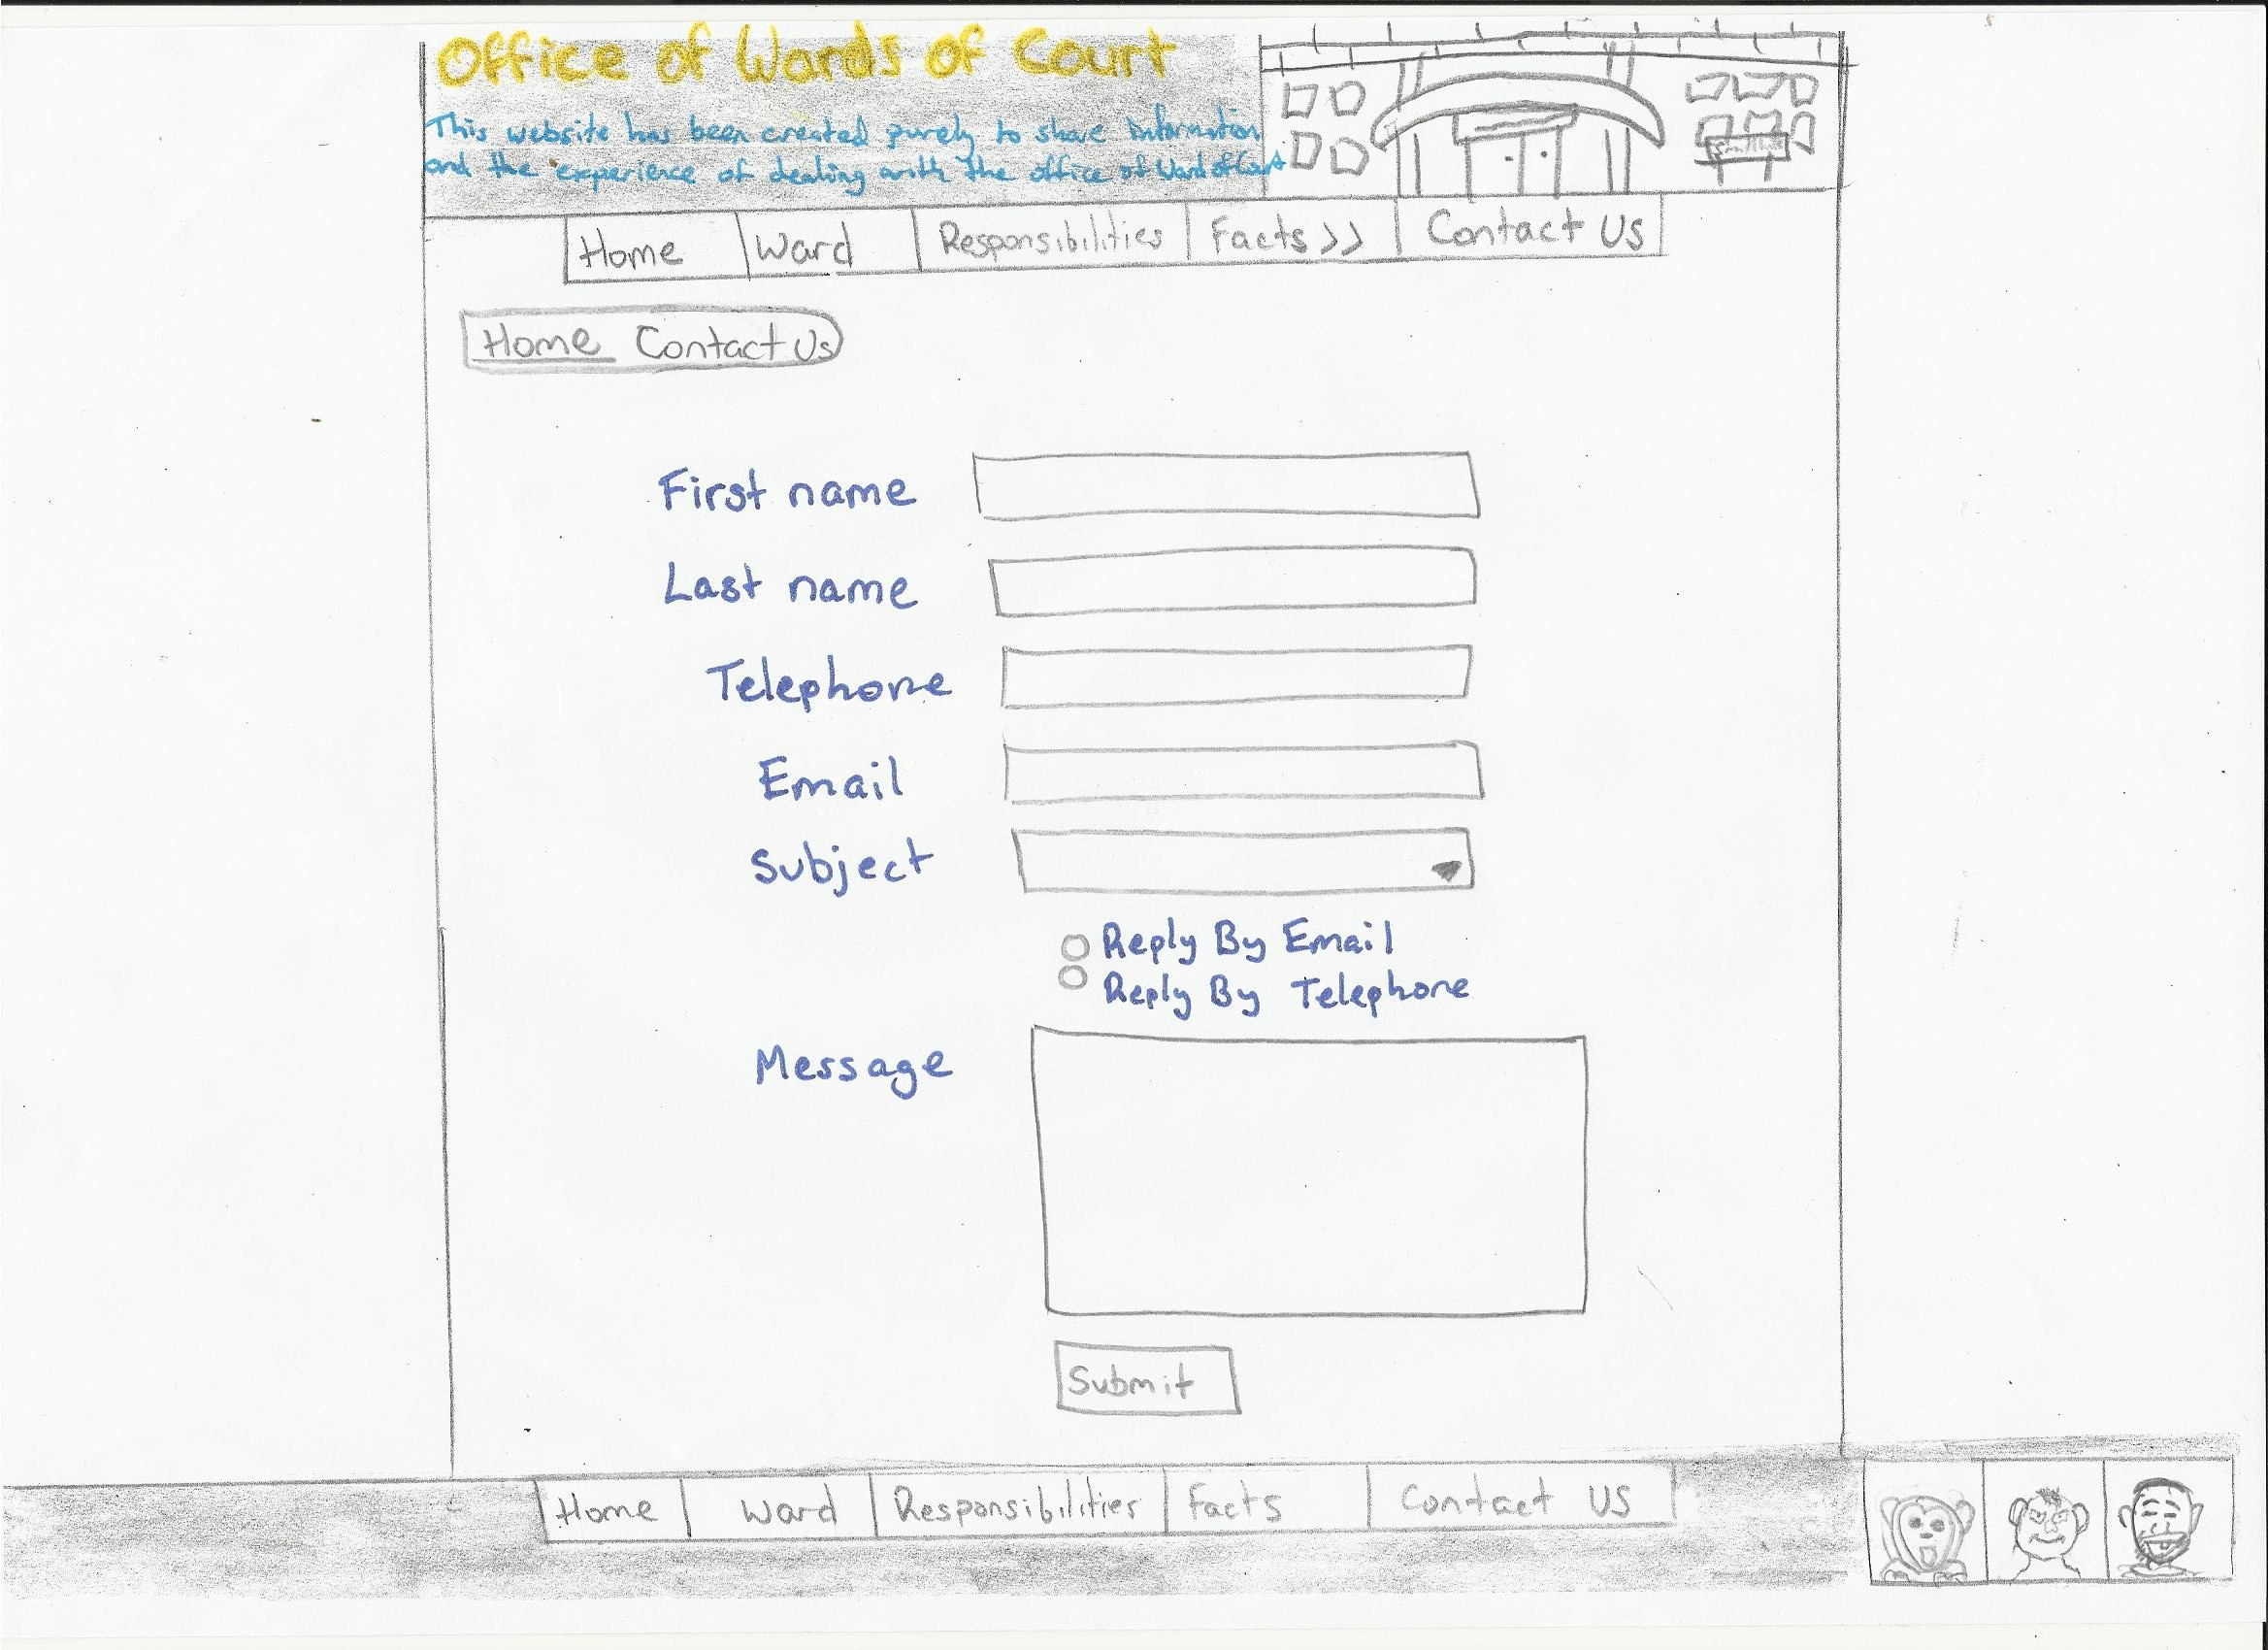 Office of Wards of Court
This website has been created purely to share information
and the experience of dealing with the office of Ward of Court
Home Ward Responsibilities Facts >> Contact Us
Home Contact Us
First name
Last name
Telephone
Email
Subject
Reply By Email
Reply By Telephone
Message
Submit
Home Ward Responsibilities Facts Contact Us